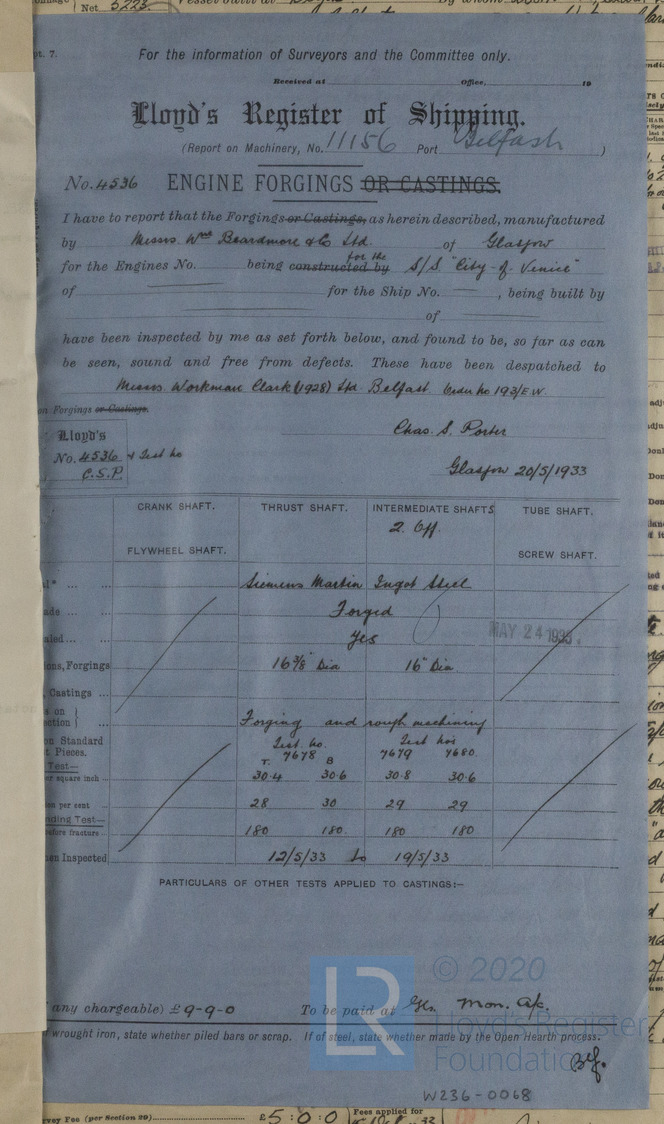 Net 5223
pt. 7.
For the information of Surveyors and the Committee only.
Received at Office, 19
Lloyd's Register of Shipping.
(Report on Machinery, No. 11156 Port Belfast )
No. 4536 ENGINE FORGINGS OR CASTINGS.
I have to report that the Forgings or Castings, as herein described, manufactured
by Messrs. Wm Beardmore & Co Ltd. of Glasgow
for the Engines No. being constructed by for the S/S "City of Venice"
of for the Ship No. , being built by
of
have been inspected by me as set forth below, and found to be, so far as can
be seen, sound and free from defects. These have been despatched to
Messrs. Workman Clark (1928) Ltd. Belfast. Order No 193/E.W.
on Forgings or Castings.
Chas. S. Porter
Lloyd's
No. 4536 & Test No
C.S.P.
Glasgow 20/5/1933
CRANK SHAFT. THRUST SHAFT. INTERMEDIATE SHAFTS TUBE SHAFT.
2. Off.
FLYWHEEL SHAFT. SCREW SHAFT.
Siemens Martin Ingot Steel
Forged
Yes
MAY 24 1933.
ons, Forgings 16 3/8" Dia 16" Dia
Castings ...
s on
ction Forging and rough machining
on Standard Test No. Test Nos
t Pieces. 7678 7679 7680.
Test— T. B
er square inch 30.4 30.6 30.8 30.6
ion per cent 28 30 29 29
nding Test—
before fracture 180 180. 180 180
on Inspected 12/5/33 to 19/5/33
PARTICULARS OF OTHER TESTS APPLIED TO CASTINGS:—
any chargeable) £9-9-0 To be paid at Gls. Mon. A/c.
f wrought iron, state whether piled bars or scrap. If of steel, state whether made by the Open Hearth process.
LR
© 2020
Lloyd's Register
Foundation
W236-0068
vey Fee (per Section 29) £5:0:0 Fees applied for